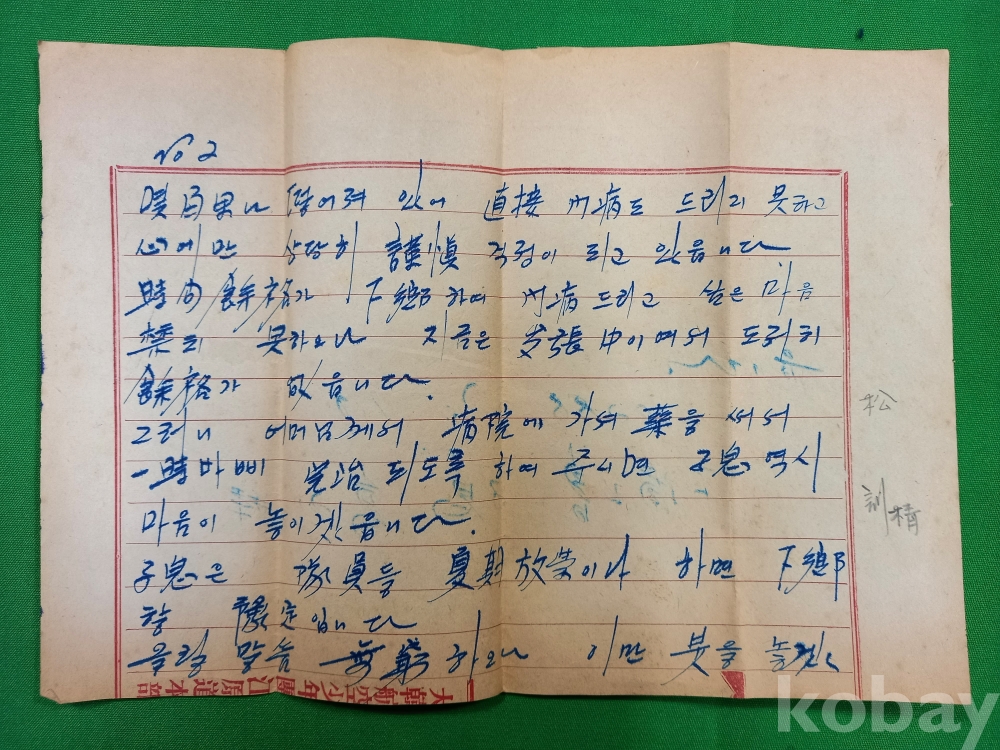 No 2
떨어져 있어 直接 問病도 드리지 못하고
心에만 상당히 걱정이 되고 있읍니다
時間 餘裕가 下鄕하여 問病드리고 싶은 마음
禁치 못하오나 지금은 出張中이여서 도저히
餘裕가 없읍니다.
그러니 어머님께서 病院에 가셔 藥을 써서
一時바삐 完治되도록 하여 주시면 子息 역시
마음이 놓이겟읍니다.
子息은 隊員들 夏期放學이나 하면 下鄕
할 豫定입니다
올릴 말씀 無窮하오나 이만 붓을 놓겠
大韓航空少年團江原道本部
松
訓 精
kobay